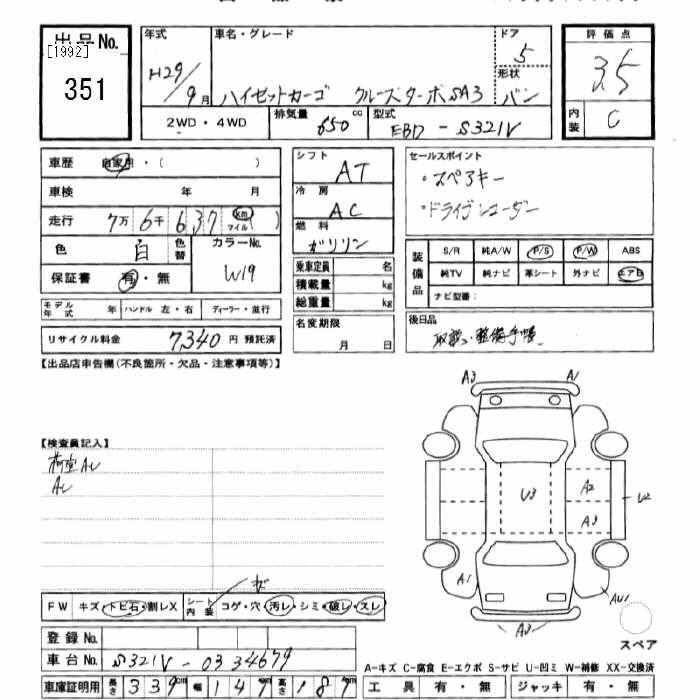 出品No. 年式 車名・グレード ドア 5 評価点
[1992] 351 H29/9月 ハイゼットカーゴ クルーズターボSA3 形状 バン 3.5
2WD・4WD 排気量 650 cc 型式 EBD-S321V 内装 C
車歴 自家用・( )
車検 年 月
走行 7万 6千 637 km マイル( )
色 白 色替 カラーNo. W19
保証書 有・無
モデル年式 年 ハンドル 左・右 ディーラー・並行
リサイクル料金 7340 円 預託済
シフト AT
冷房 AC
燃料 ガソリン
乗車定員 名
積載量 kg
総重量 kg
名変期限 月 日
セールスポイント
・スペアキー
・ドライブレコーダー
装備品 S/R 純A/W P/S P/W ABS
純TV 純ナビ 革シート 外ナビ エアB
ナビ型番:
後日品
取説・整備手帳
【出品店申告欄(不良箇所・欠品・注意事項等)】
【検査員記入】
荷室AU
AU
A3 A1
U3 A2 U2
A3
A1 AU1
A3
スペア
FW キズ・トビ石・割レX シート内装 コゲ・穴・汚レ・シミ・破レ・スレ
登録No.
車台No. S321V-0334679
A-キズ C-腐食 E-エクボ S-サビ U-凹ミ W-補修 XX-交換済
車庫証明用 長さ 339cm 幅 147cm 高さ 187cm 工具 有・無 ジャッキ 有・無